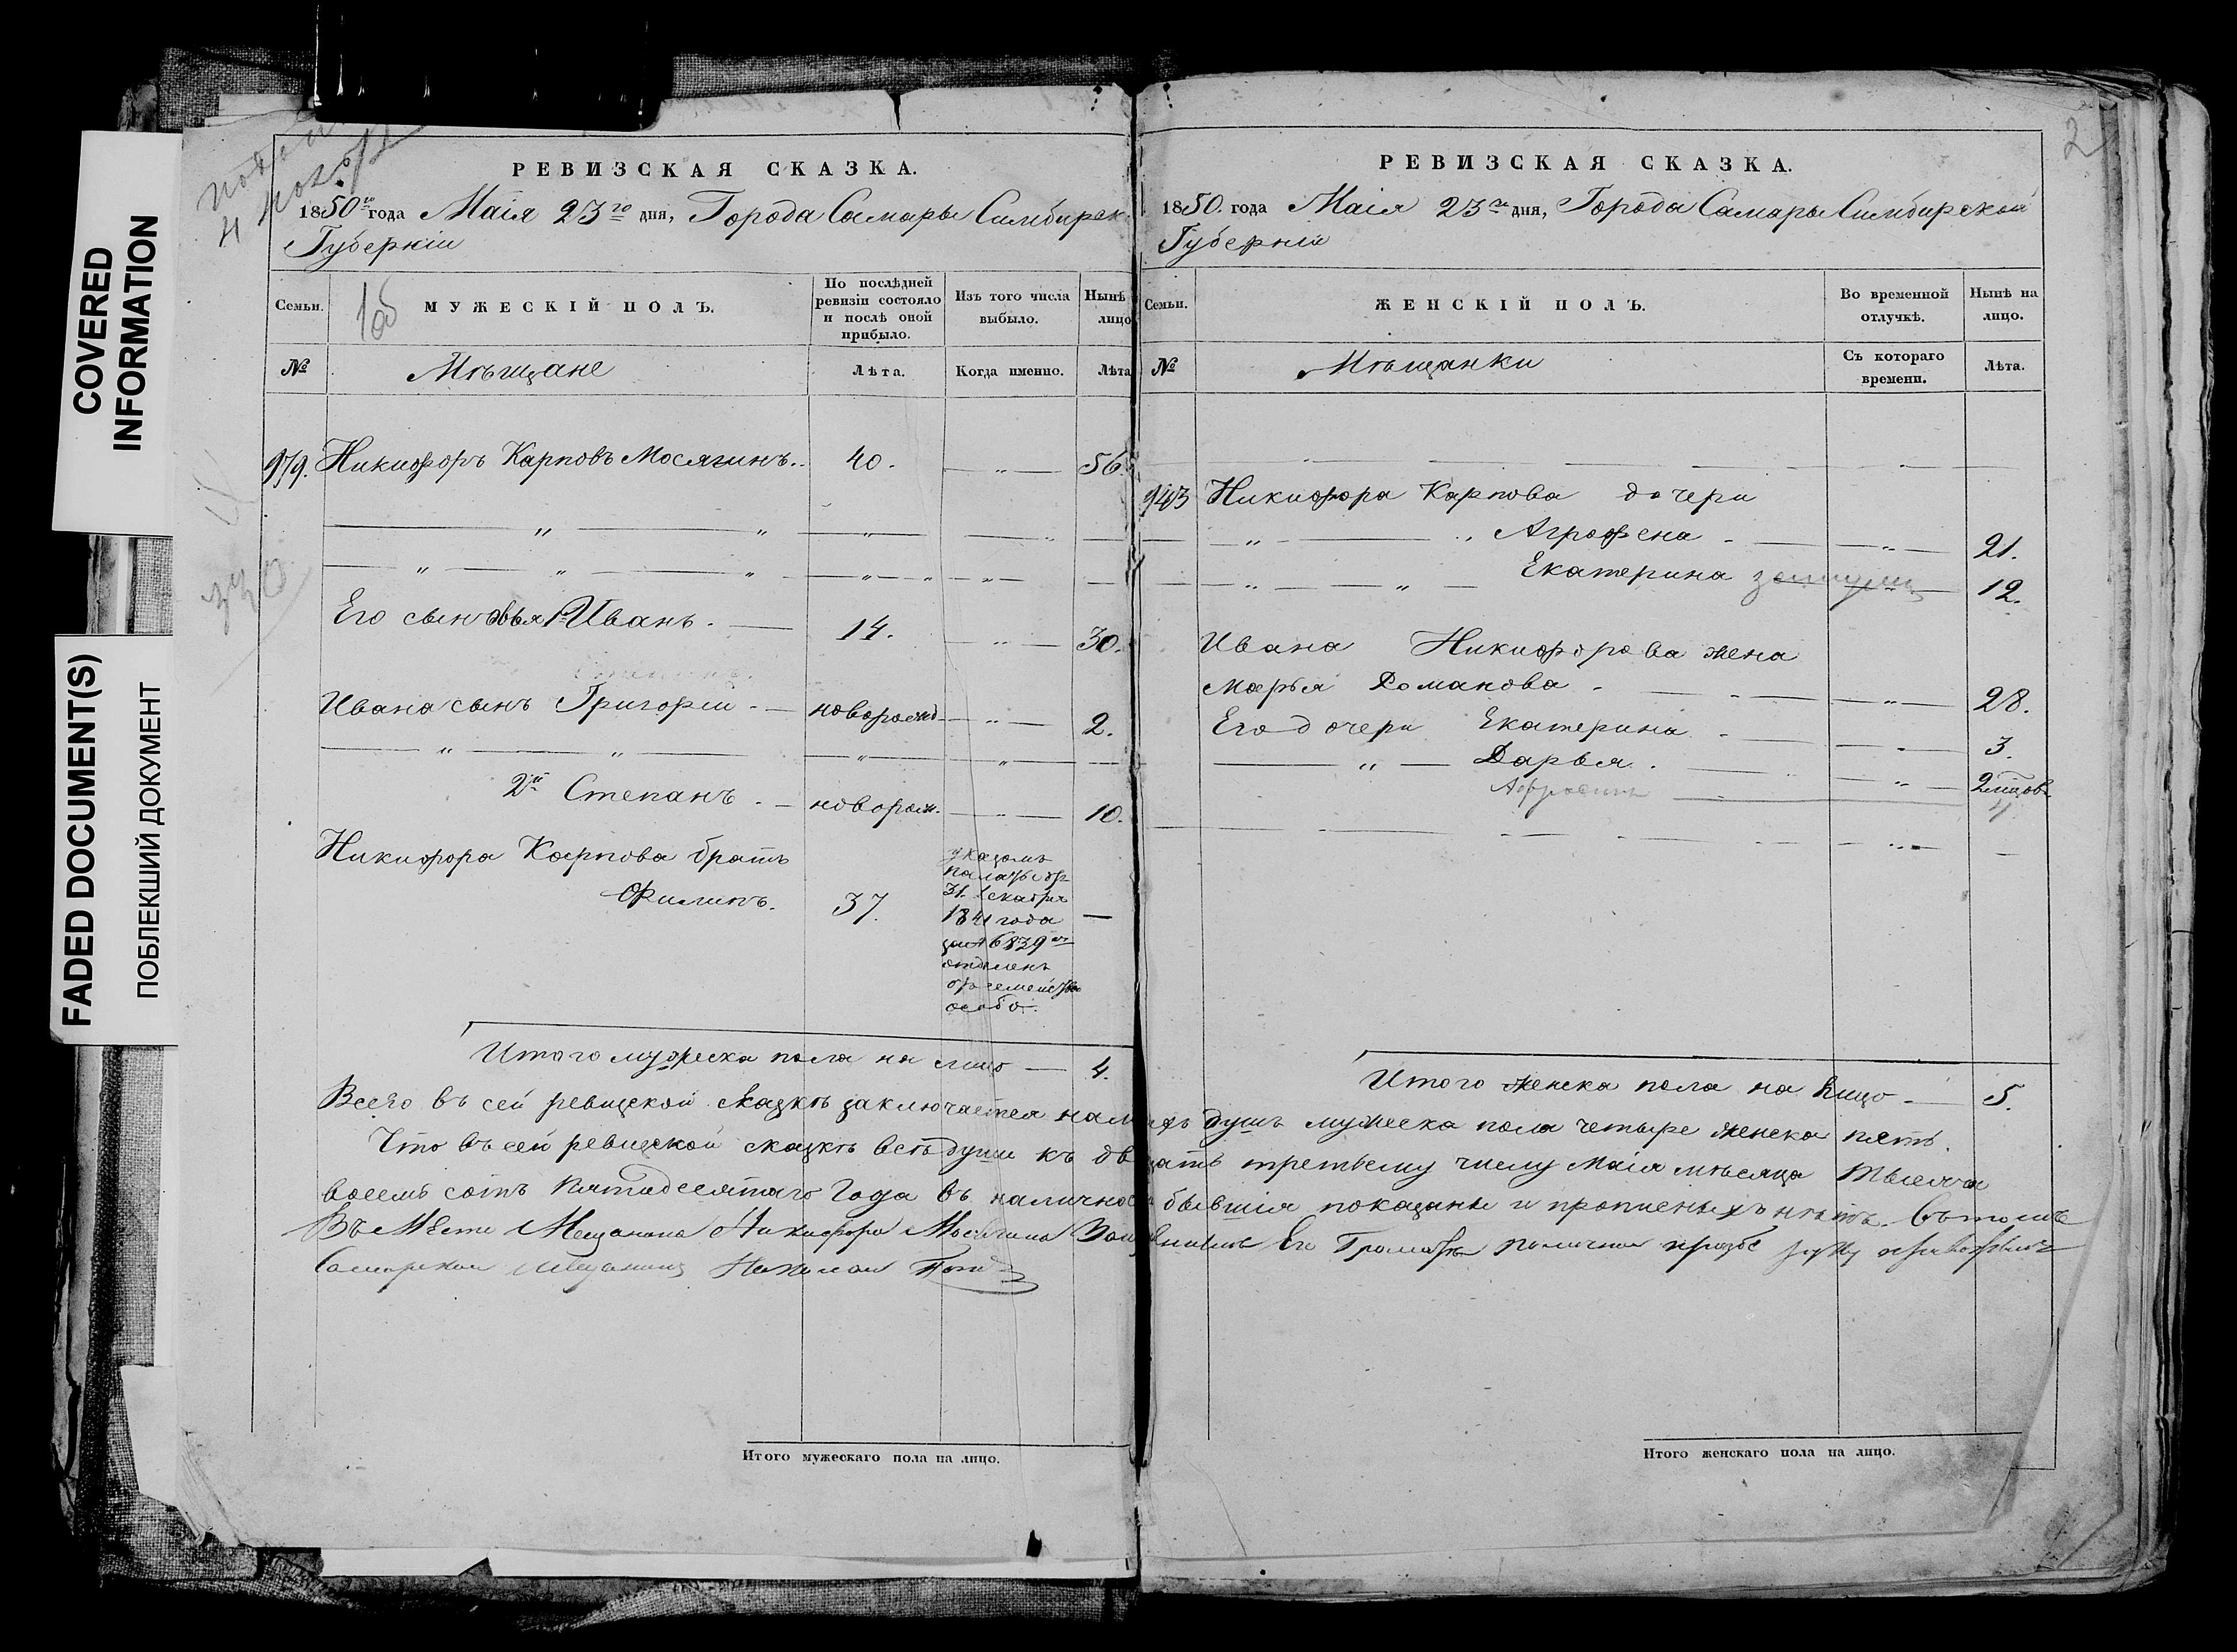 COVERED
INFORMATION
FADED DOCUMENT(S)
ПОБЛЕКШИЙ ДОКУМЕНТ
РЕВИЗСКАЯ СКАЗКА.
1850го года Маія 23го дня, Города Самары Симбирск.
Губерніи
Семьи.
МУЖЕСКІЙ ПОЛЪ.
По послѣдней ревизіи состояло и послѣ оной прибыло.
Изъ того числа выбыло.
Нынѣ лицо
№
Мѣщане
Лѣта.
Когда именно.
Лѣта
979. Никифоръ Карповъ Мосягинъ.. 40. — „ — 56.
Его сыновья 1й Иванъ. — 14. — „ — 30.
Степанъ.
Ивана сынъ Григории - — новорожд — „ — 2.
2й Степанъ. — новорож. — „ — 10.
Никифора Карпова братъ
Филипъ. 37. —
указомъ
31. декабря
1841 года
за № 6839м
отделенъ
отъ семейства
особо.
Итого мужеска пола на лицо — 4.
РЕВИЗСКАЯ СКАЗКА.
2
1850. года Маія 23го дня, Города Самары Симбирской
Губерніи
Семьи.
ЖЕНСКІЙ ПОЛЪ.
Во временной отлучкѣ.
Нынѣ на лицо.
№
Мѣщанки
Съ котораго времени.
Лѣта.
943 Никифора Карпова дочери
Агрофена - — „ — 21.
Екатерина замужем 12.
Ивана Никифорова жена
Марья Романова - — „ — 28.
Его дочери Екатерина - — „ — 3.
„ — Дарья. — „ — 2 мѣцовъ
4
Итого женска пола на лицо - — 5.
Всего въ сей ревизской сказкѣ заключается налицо душъ мужеска пола четыре женска пять.
Что въ сей ревизской сказкѣ всѣ души къ двацать третьему числу Маія мѣсяца тысяча
восемь сотъ пятидесятаго года въ наличности бывшія показаны и прописныхъ нѣтъ. Въ томъ
Въ место Мещанина Никифора Мосягина Его прозбе руку
Самарской мещанинъ Николай
Итого мужескаго пола на лицо.
Итого женскаго пола на лицо.